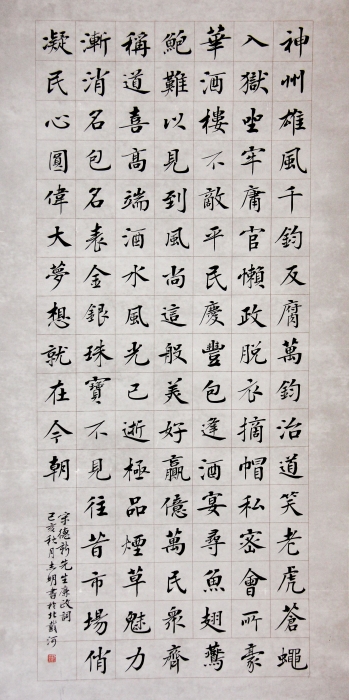 神州雄風千鈞反腐萬鈞治道笑老虎蒼蠅
入獄坐牢庸官懶政脫衣摘帽私密會所豪
華酒樓不敵平民慶豐包逢酒宴尋魚翅鶯
鮑難以見到風尚這般美好贏億萬民衆齊
稱道喜高端酒水風光已逝極品煙草魅力
漸消名包名表金銀珠寶不見往昔市場俏
凝民心圓偉大夢想就在今朝
宋德新先生廉政詞
己亥秋月志明書於北戴河